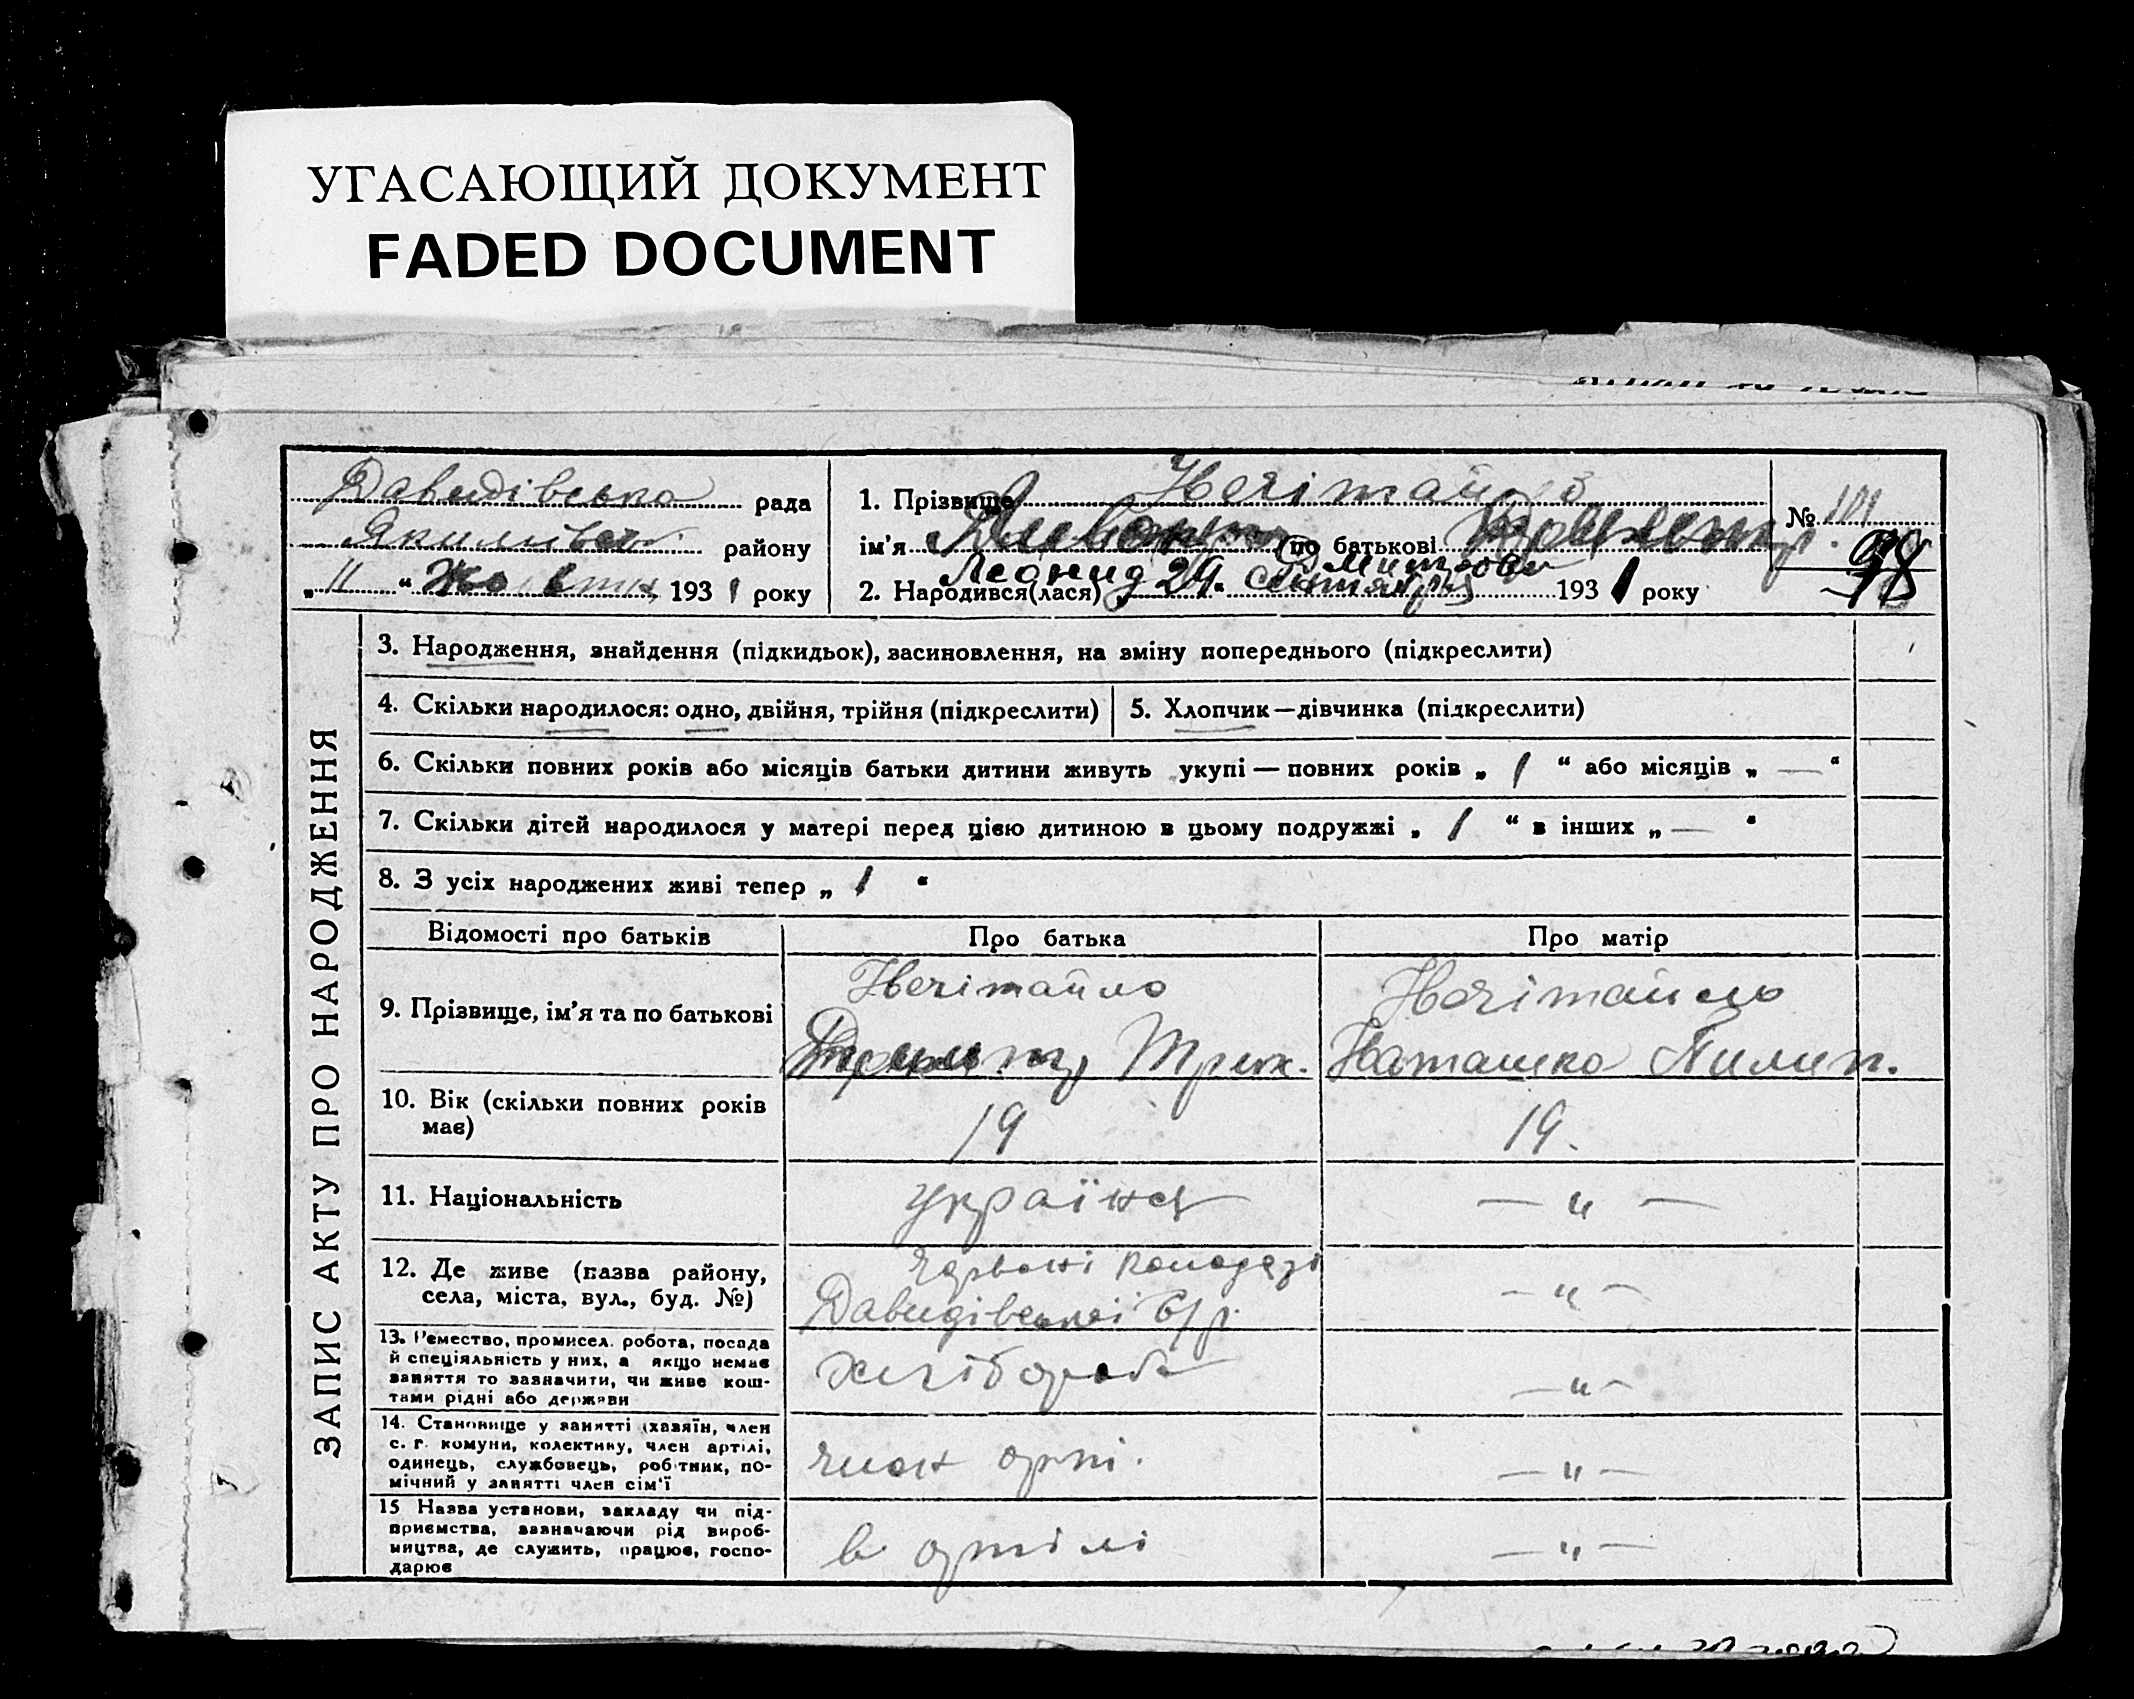 УГАСАЮЩИЙ ДОКУМЕНТ
FADED DOCUMENT
Давидівська рада
району
„ 11 “ 193 1 року
1. Прізвище Нечітайло
ім'я по батькові
Леонид Дмитрови
2. Народився(лася) „ 24 “ сентября 193 1 року
№ 101
98
ЗАПИС АКТУ ПРО НАРОДЖЕННЯ
3. Народження, знайдення (підкидьок), засиновлення, на зміну попереднього (підкреслити)
4. Скільки народилося: одно, двійня, трійня (підкреслити)
5. Хлопчик—дівчинка (підкреслити)
6. Скільки повних років або місяців батьки дитини живуть укупі — повних років „ 1 “ або місяців „ — “
7. Скільки дітей народилося у матері перед цією дитиною в цьому подружжі „ 1 “ в інших „ — “
8. З усіх народжених живі тепер „ 1 “
Відомості про батьків Про батька Про матір
9. Прізвище, ім'я та по батькові
Нечітайло
Трих.
Нечітайло
Наташка Пилип.
10. Вік (скільки повних років має)
19
19.
11. Національність
українец
— „ —
12. Де живе (назва району,
села, міста, вул., буд. №)
Червоні Колодязі
Давидівської с/р.
— „ —
13. Ремество, промисел, робота, посада
й спеціяльність у них, а якщо немає
заняття то зазначити, чи живе кош-
тами рідні або держави
хлібороб
— „ —
14. Становище у занятті (хазяїн, член
с. г. комуни, колективу, член артілі,
одинець, службовець, робітник, по-
мічний у занятті член сім'ї
член арті.
— „ —
15 Назва установи, закладу чи під-
приємства, зазначаючи рід вироб-
ництва, де служить, працює, госпо-
дарює
в артілі
— „ —